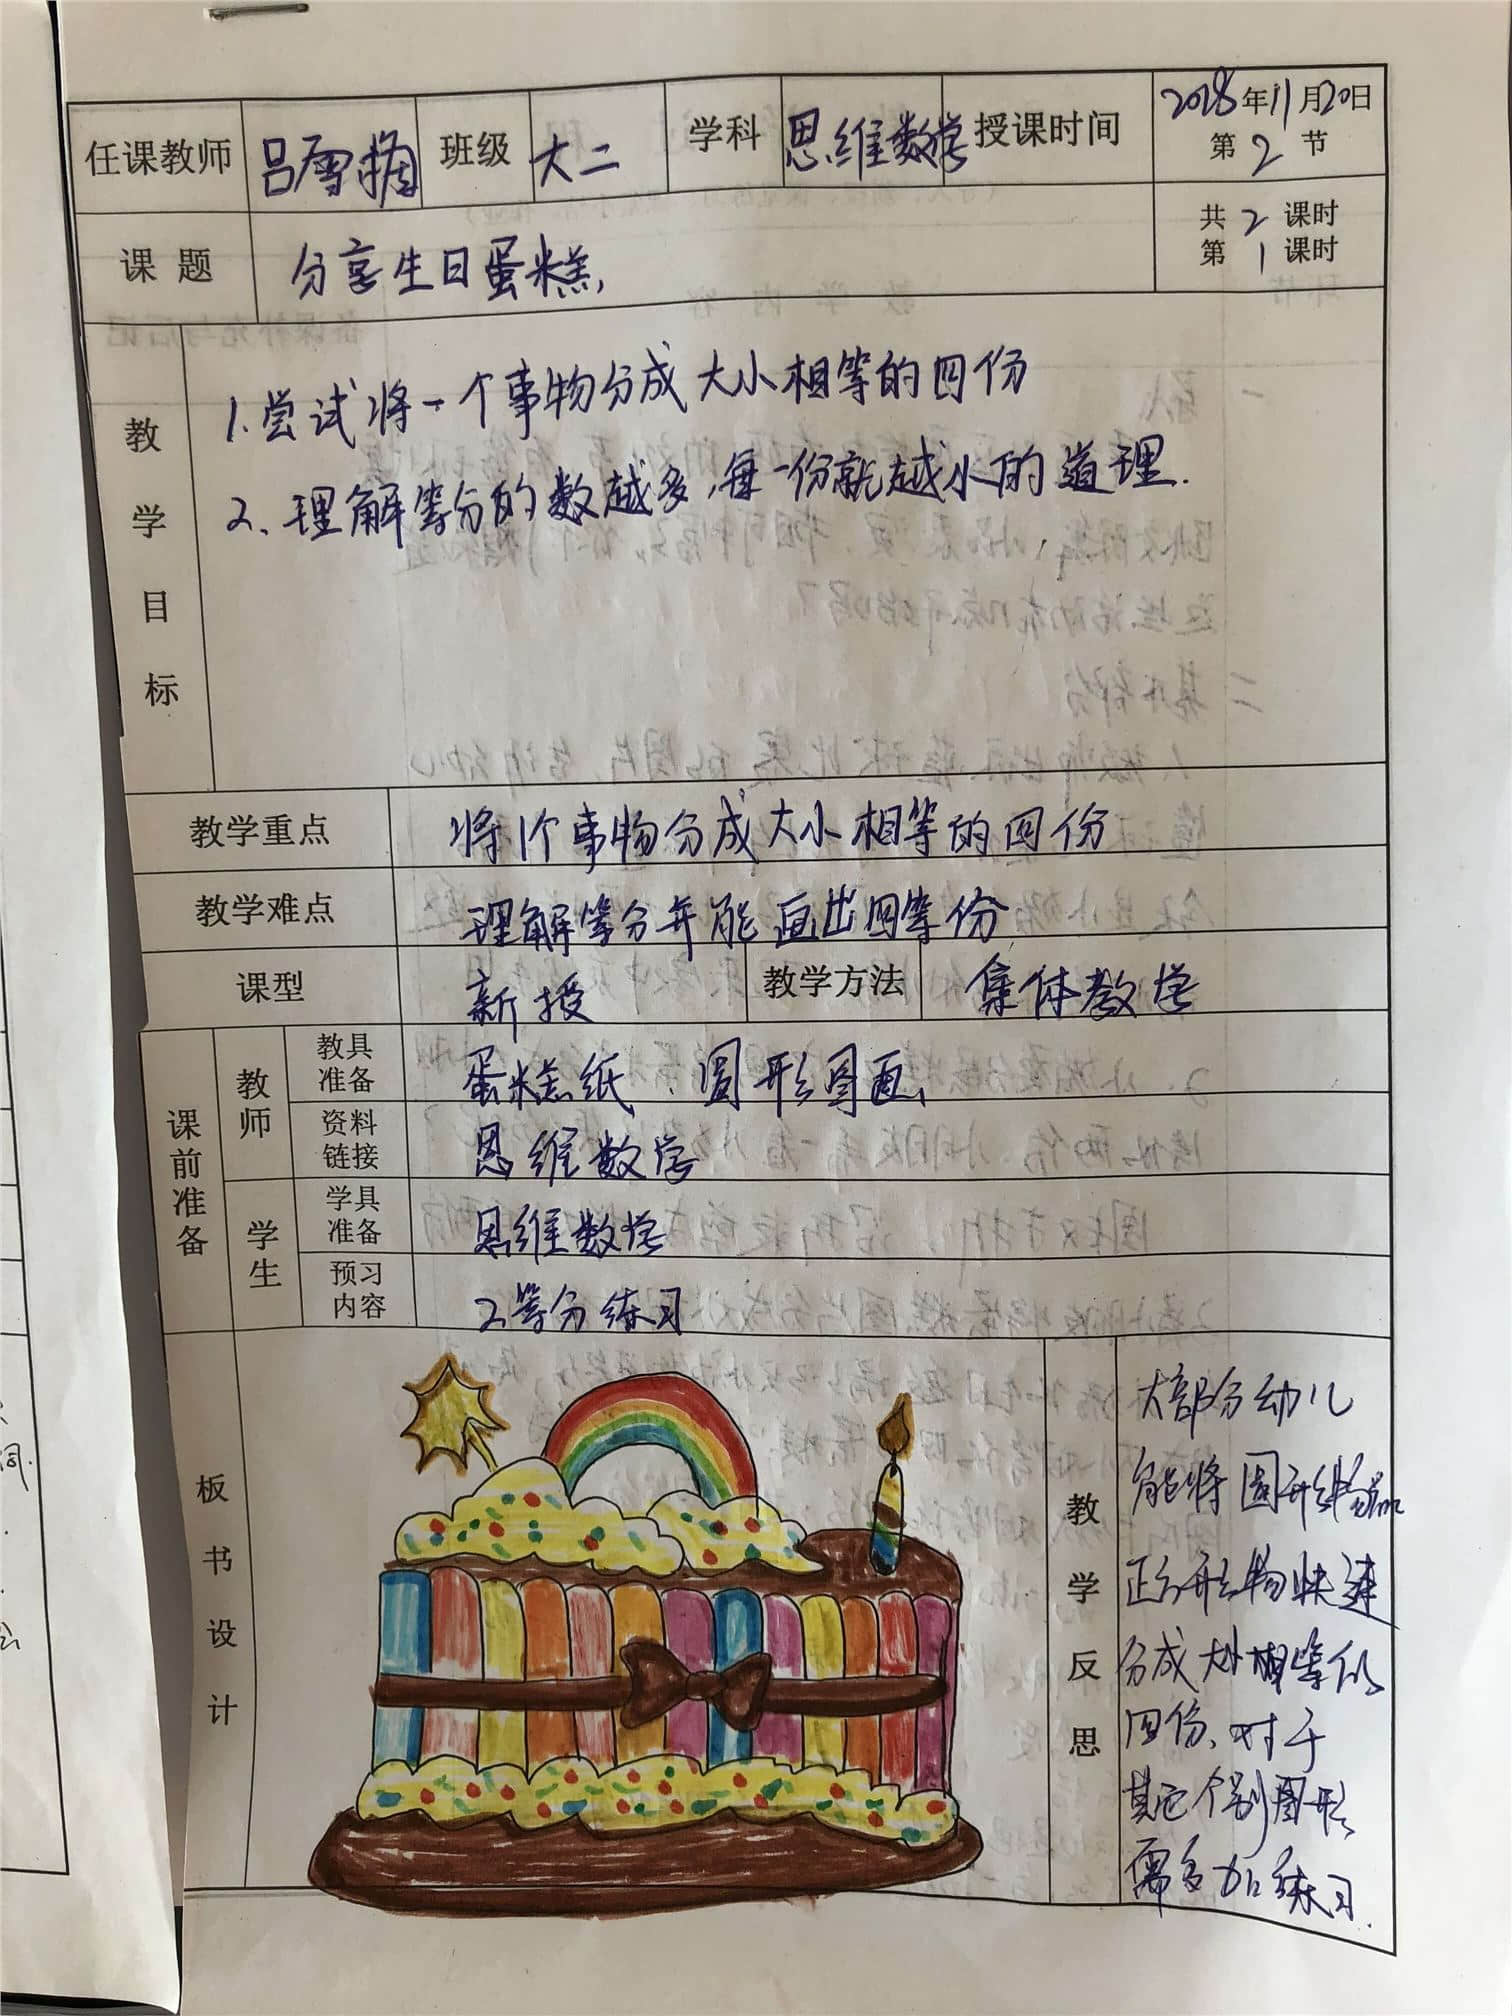 任课教师 吕雪摘 班级 大二 学科 思维数学 授课时间 2018年11月20日
第2节
课题 分享生日蛋糕
共2课时
第1课时
教学目标
1.尝试将一个事物分成大小相等的四份
2、理解等分的数越多,每一份就越小的道理.
教学重点 将1个事物分成大小相等的四份
教学难点 理解等分并能画出四等份
课型 新授 教学方法 集体教学
课前准备
教师 教具准备 蛋糕纸、圆形图画
资料链接 思维数学
学生 学具准备 思维数学
预习内容 2等分练习
板书设计
教学反思
大部分幼儿
能将圆形物品
正方形物快速
分成大小相等的
四份、对于
其它个别图形
需多加练习.